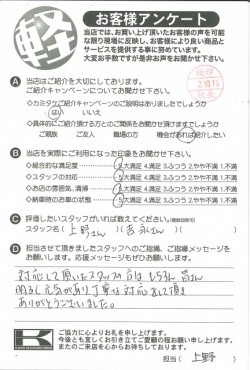 軽
お客様アンケート
当店では、お買い上げ頂いたお客様の声を可能
な限り現場に反映し、お客様により良い商品と
サービスを提供する事に努めています。
大変お手数ですが是非お声をお聞かせ下さい。
A 当店はご紹介を大切にしております。
ご紹介キャンペーンについてお聞かせ下さい。
・カミタニご紹介キャンペーンのご説明はありましたでしょうか
はい いいえ
・具体的にご紹介頂ける方とのご関係をお聞かせ頂けますでしょうか
ご親族 ご友人 職場の方 機会があれば紹介したい
B 当店を実際にご利用になった印象をお聞かせ下さい。
・総合的な満足度 5大満足 4.満足 3.ふつう 2.やや不満 1.不満
・スタッフの対応 5大満足 4.満足 3.ふつう 2.やや不満 1.不満
・お店の雰囲気、清潔 5大満足 4.満足 3.ふつう 2.やや不満 1.不満
・納車時のお車の状態 5大満足 4.満足 3.ふつう 2.やや不満 1.不満
C 評価したいスタッフがいれば教えてください。
スタッフ名( 上野さん )( 吉永さん )
D 担当させて頂きましたスタッフへのご指摘、ご指導メッセージをお
願いします。応援メッセージもぜひお願いします。
対応して頂いたスタッフの方はもちろん、皆さん
明るく元気があり丁寧な対応をして頂き
ありがとうございました。
K
ご協力に心よりお礼を申し上げます。
今後とも宜しくお引き立てご愛顧の程お願い申し上げます。
またのご来店を心からお待ちしております。
担当( 上野 )